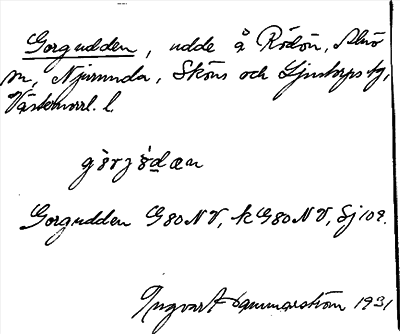 Gorgudden, udde å Rödön, Alnö
sn, Njurunda, Sköns och Ljustorps tg,
Västernorrl. l.
Gorgudden G80NV, k G80NV, Sj 102.
Ingvar Hammarström 1931